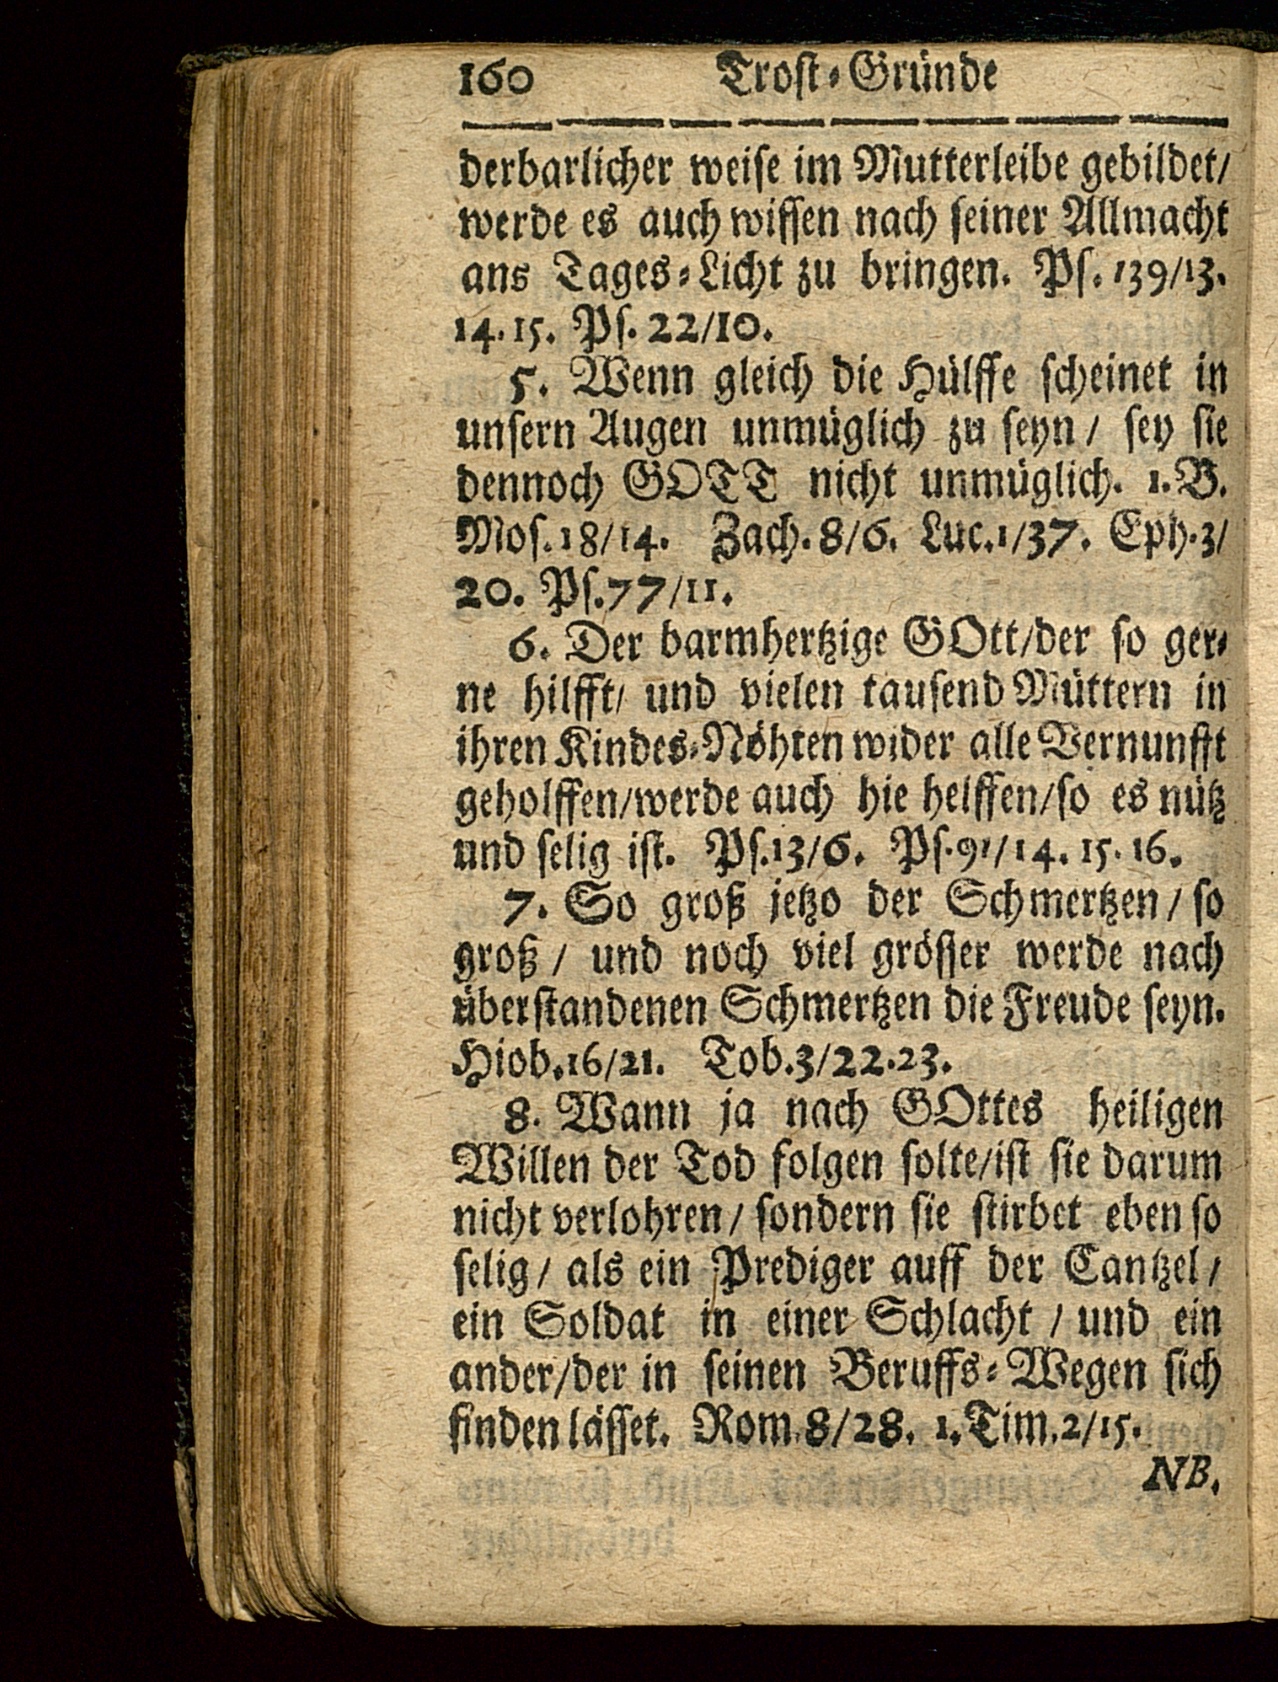 160 Trost-Gründe
derbarlicher weise im Mutterleibe gebildet/
werde es auch wissen nach seiner Allmacht
ans Tages-Licht zu bringen. Ps. 139/13.
14. 15. Ps. 22/10.
5. Wenn gleich die Hülffe scheinet in
unsern Augen unmüglich zu seyn/ sey sie
dennoch GOTT nicht unmüglich. 1. B.
Mos. 18/14. Zach. 8/6. Luc. 1/37. Eph. 3/
20. Ps. 77/11.
6. Der barmhertzige GOtt/der so ger-
ne hilfft/ und vielen tausend Müttern in
ihren Kindes-Nöhten wider alle Vernunfft
geholffen/werde auch hie helffen/so es nütz
und selig ist. Ps. 13/6. Ps. 91/14. 15. 16.
7. So groß jetzo der Schmertzen/ so
groß/ und noch viel grösser werde nach
überstandenen Schmertzen die Freude seyn.
Hiob. 16/21. Tob. 3/22. 23.
8. Wann ja nach GOttes heiligen
Willen der Tod folgen solte/ist sie darum
nicht verlohren/ sondern sie stirbet eben so
selig/ als ein Prediger auff der Cantzel/
ein Soldat in einer Schlacht/ und ein
ander/der in seinen Beruffs-Wegen sich
finden lässet. Rom. 8/28. 1. Tim. 2/15.
NB.